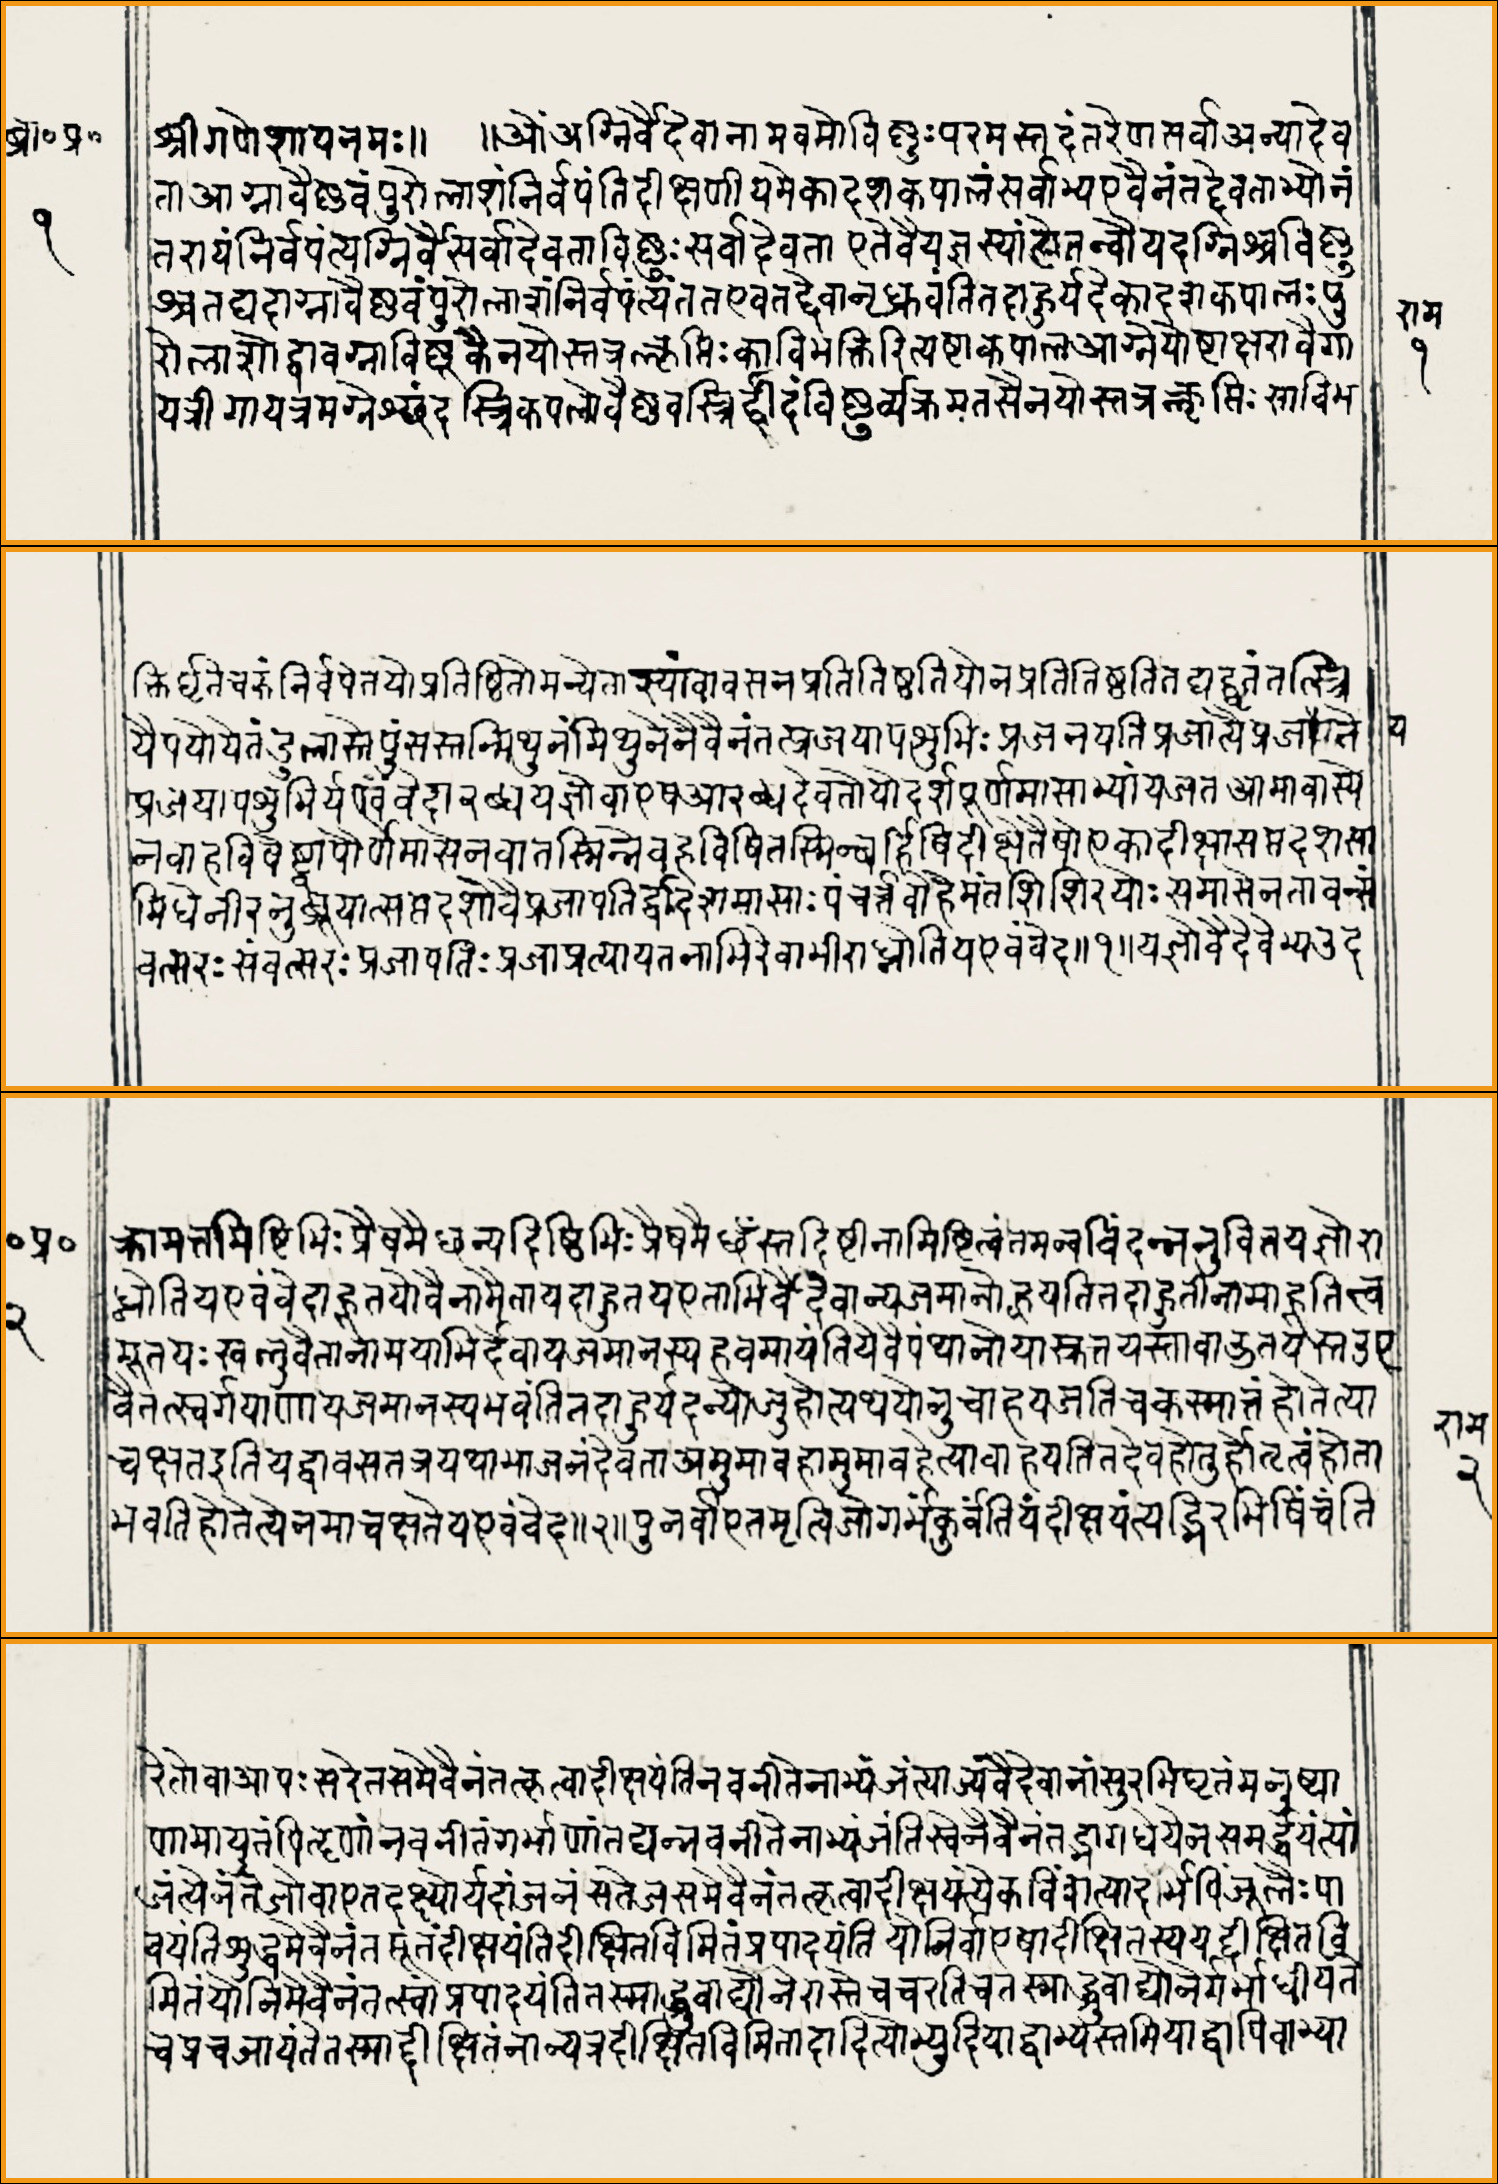 ब्रा॰ प्र॰
१
श्रीगणेशायनमः॥ ॥ओं अग्निर्वैदेवानामवमोविष्णुःपरमस्तदंतरेणसर्वाअन्यादेव
ताआग्नावैष्णवंपुरोलाशंनिर्वपंतिदीक्षणीयमेकादशकपालंसर्वाभ्यएवैनंतद्देवताभ्योनं
तरायंनिर्वपंत्यग्निर्वैसर्वादेवताविष्णुःसर्वादेवता एतेवैयज्ञस्यांत्येतन्वौयदग्निश्चविष्णु
श्चतद्यदाग्नावैष्णवंपुरोलाशंनिर्वपंत्यंततएवतद्देवानृध्नुवंतितदाहुर्यदेकादशकपालःपु
रोलाशोद्वावग्नाविष्णूकैनयोस्तत्रक्लृप्तिःकाविभक्तिरित्यष्टाकपालआग्नेयोष्टाक्षरावैगा
यत्रीगायत्रमग्नेश्छंदस्त्रिकपालोवैष्णवस्त्रिर्हीदंविष्णुर्व्यक्रमतसैनयोस्तत्रक्लृप्तिःसाविभ
राम
१
क्तिर्घृतेचरुंनिर्वपेतयोप्रतिष्ठितोमन्येतास्यांवावसनप्रतितिष्ठतियोनप्रतितिष्ठतितद्यद्घृतंतत्स्त्रि
यैपयोयेतंडुलास्तेपुंसस्तन्मिथुनंमिथुनेनैवैनंतत्प्रजयापशुभिःप्रजनयतिप्रजात्यैप्रजायते
य
प्रजयापशुभिर्यएवंवेदारब्धयज्ञोवाएषआरब्धदेवतोयोदर्शपूर्णमासाभ्यांयजतआमावास्ये
नवाहविषेष्ट्वापौर्णमासेनवातस्मिन्नेवहविषितस्मिन्बर्हिषिदीक्षेतैषोएकादीक्षासप्तदशसा
मिधेनीरनुब्रूयात्सप्तदशोवैप्रजापतिर्द्वादशमासाःपंचर्त्तवोहेमंतशिशिरयोःसमासेनतावन्सं
वत्सरःसंवत्सरःप्रजापतिःप्रजाप्रत्यायतनाभिरेवाभीराध्नोतियएवंवेद॥१॥यज्ञोवैदेवेभ्यउद
॰प्र॰
२
क्रामत्तमिष्टिभिःप्रैषमैछन्यदिष्टिभिःप्रैषमैछंस्तदिष्टीनामिष्टित्वंतमन्वविंदन्ननुवित्तयज्ञोरा
ध्नोतियएवंवेदाहूतयोवैनामैतायदाहुतयएताभिर्वैदेवान्यजमानोह्वयतितदाहुतीनामाहूतित्व
मूतयःखलुवैतानामयाभिर्देवायजमानस्यहवमायंतियेवैपंथानोयास्रुतयस्तावाऊतयस्तउए
वैतत्स्वर्गयाणायजमानस्यभवंतितदाहुर्यदन्योजुहोत्यथयोनुचाहयजतिचकस्मात्तंहोतेत्या
चक्षतइतियद्वावसतत्रयथाभाजनंदेवताअमुमावहामुमावहेत्यावाहयतितदेवहोतुर्होतृत्वंहोता
भवतिहोतेत्येनमाचक्षतेयएवंवेद॥२॥पुनर्वाएतमृत्विजोगर्भंकुर्वंतियंदीक्षयंत्यद्भिरभिषिंचंति
राम
२
रेतोवाआपःसरेतसमेवैनंतत्कृत्वादीक्षयंतिनवनीतेनाभ्यंजंत्याज्यंवैदेवानांसुरभिघृतंमनुष्या
णामायुतंपितॄणांनवनीतंगर्भाणांतद्यन्नवनीतेनाभ्यंजंतिस्वेनैवैनंतद्भागधेयेनसमर्द्धयंत्यां
जंत्येनंतेजोवाएतदक्ष्योर्यदांजनंसतेजसमेवैनंतत्कृत्वादीक्षयंत्येकविंशत्यादर्भपिंजूलैःपा
वयंतिशुद्धमेवैनंतत्पूतंदीक्षयंतिदीक्षितविमितंप्रपादयंतियोनिर्वाएषादीक्षितस्ययद्दीक्षितवि
मितंयोनिमेवैनंतत्स्वांप्रपादयंतितस्माद्ध्रुवाद्योनेरास्तेचचरतिचतस्माद्ध्रुवाद्योनेर्गर्भाधीयंते
चप्रचजायंतेतस्माद्दीक्षितंनान्यत्रदीक्षितविमितादादित्योभ्युदियाद्वाभ्यस्तमियाद्वापिवाभ्या